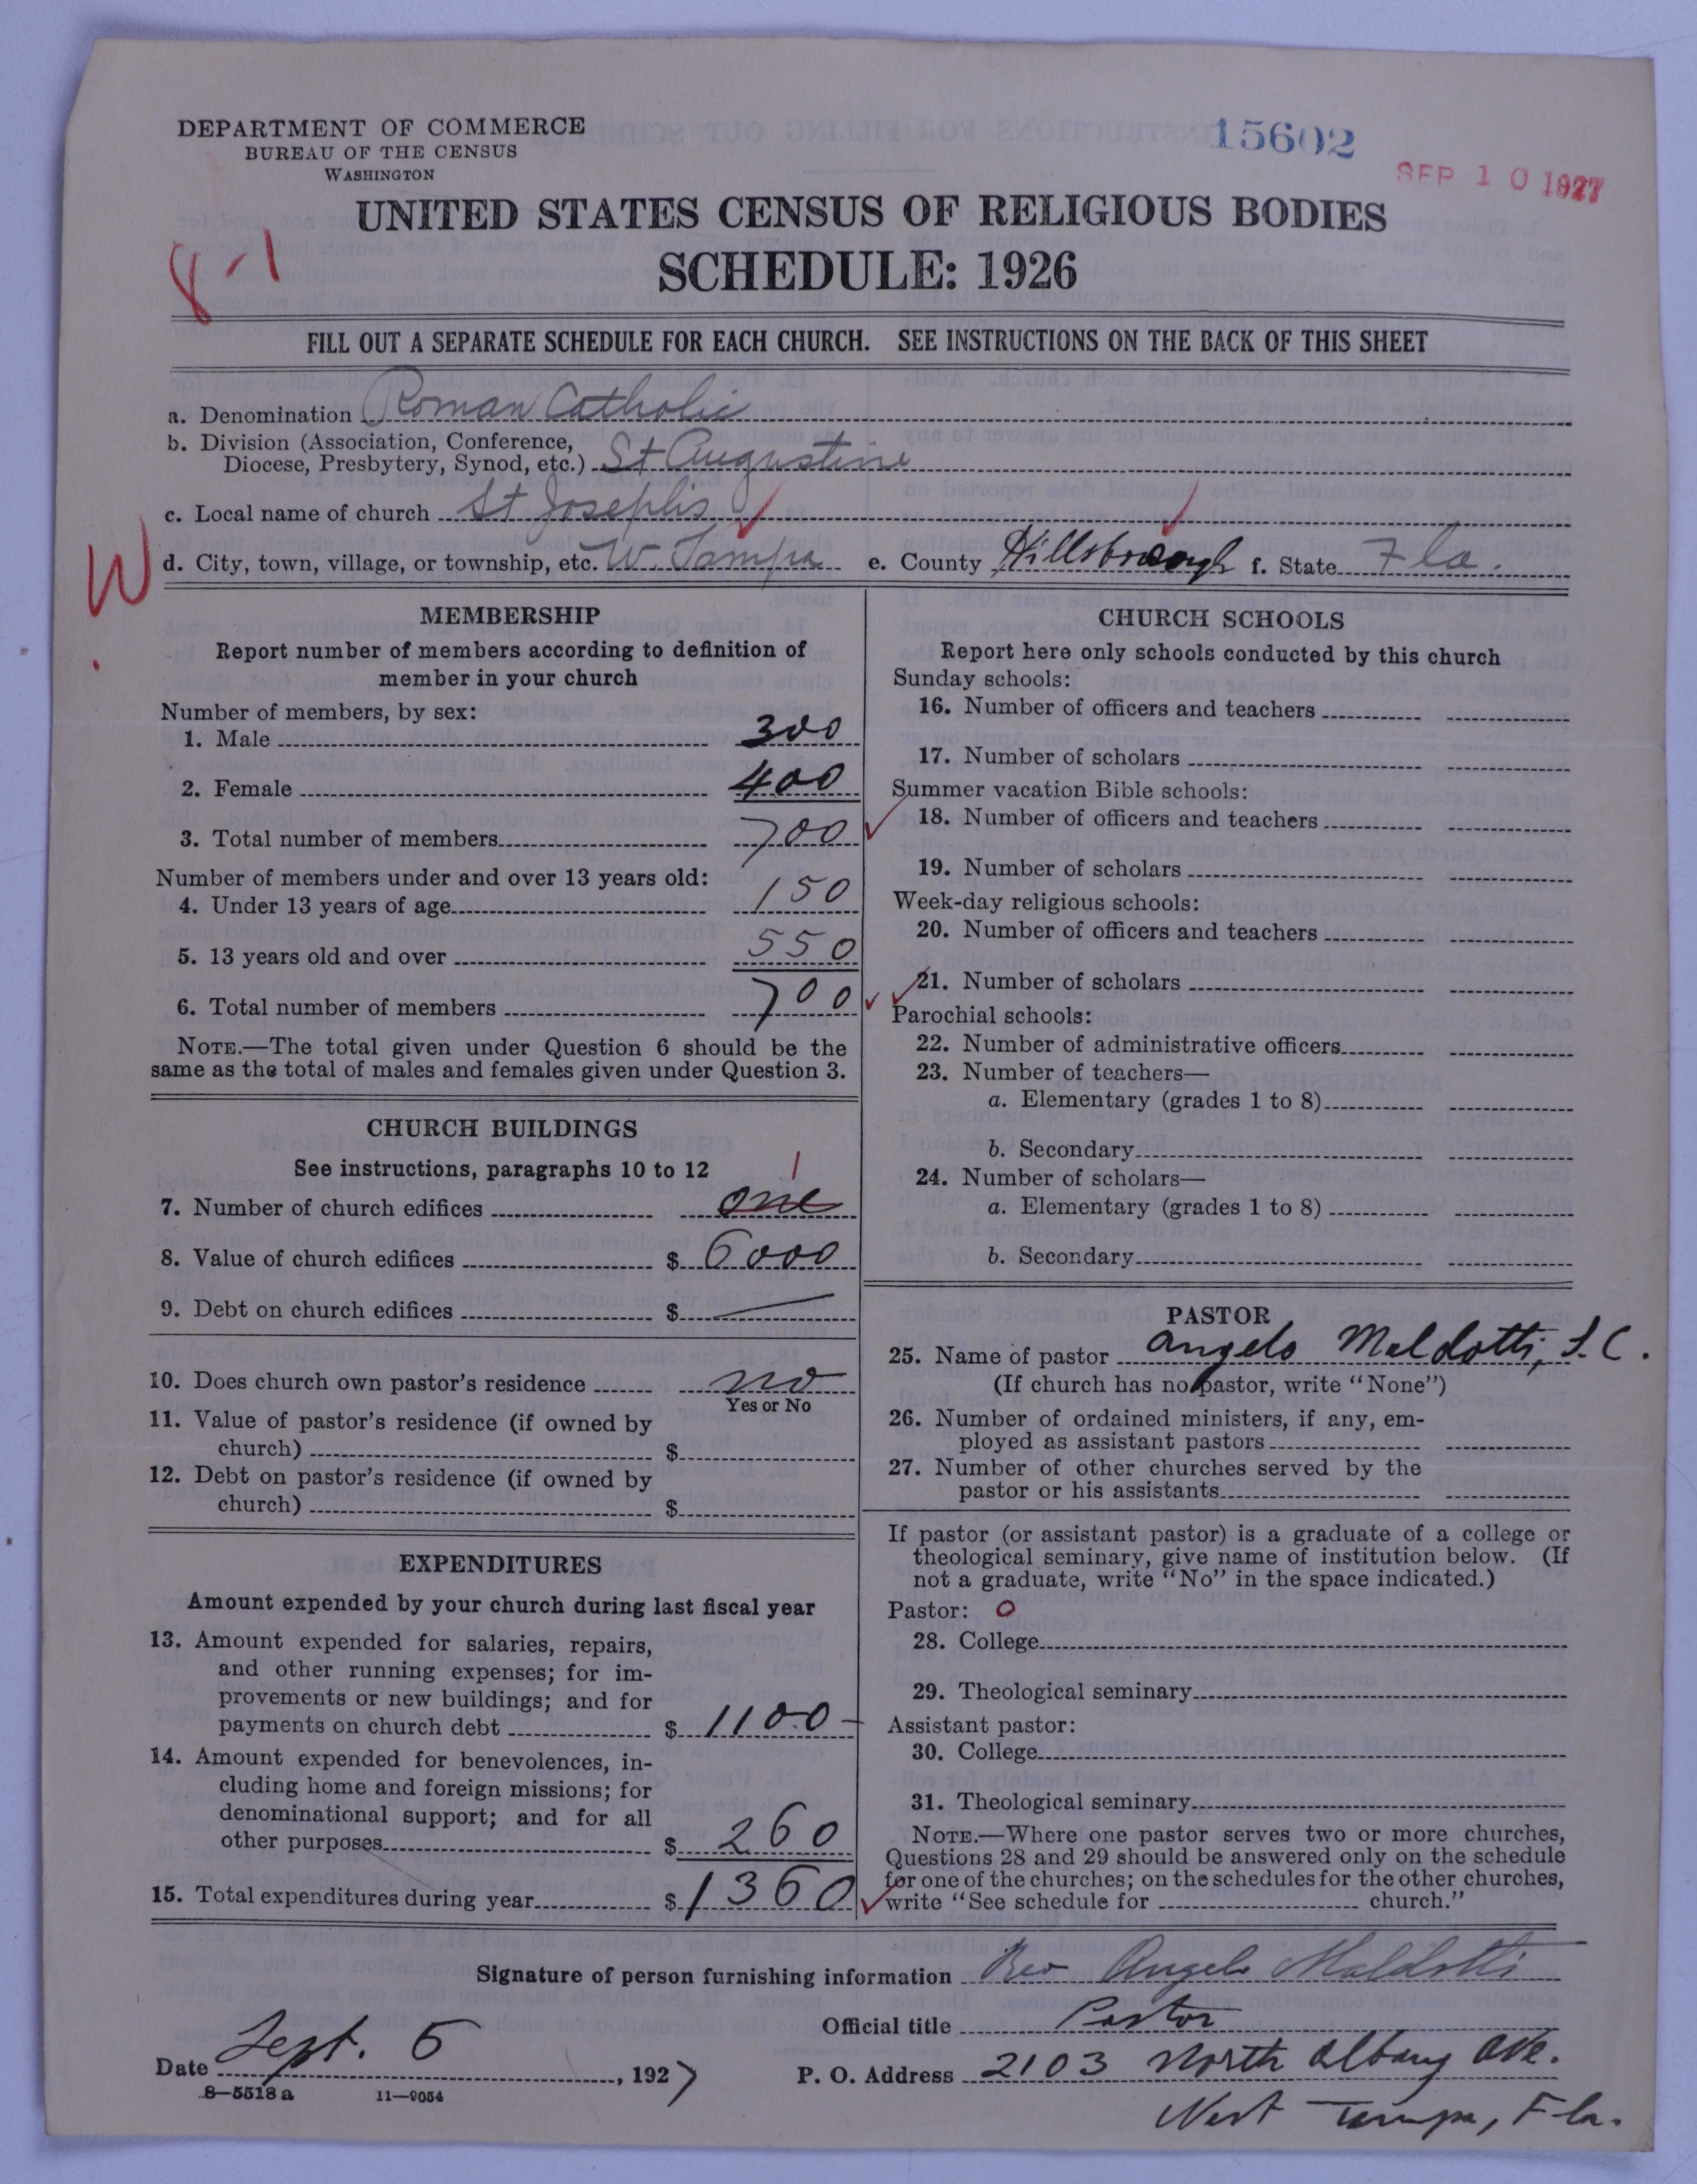 DEPARTMENT OF COMMERCE
BUREAU OF THE CENSUS
WASHINGTON
15602
SEP 10 1927
UNITED STATES CENSUS OF RELIGIOUS BODIES
SCHEDULE: 1926
8-1
FILL OUT A SEPARATE SCHEDULE FOR EACH CHURCH. SEE INSTRUCTIONS ON THE BACK OF THIS SHEET
a. Denomination Roman Catholic
b. Division (Association, Conference,
Diocese, Presbytery, Synod, etc.) St Augustine
c. Local name of church St Josephs
W
d. City, town, village, or township, etc. W. Tampa e. County Hillsborough f. State Fla.
MEMBERSHIP
Report number of members according to definition of
member in your church
Number of members, by sex:
1. Male 300
2. Female 400
3. Total number of members 700
Number of members under and over 13 years old:
4. Under 13 years of age 150
5. 13 years old and over 550
6. Total number of members 700
NOTE.—The total given under Question 6 should be the
same as the total of males and females given under Question 3.
CHURCH BUILDINGS
See instructions, paragraphs 10 to 12
1
7. Number of church edifices one
8. Value of church edifices $ 6000
9. Debt on church edifices $ —
10. Does church own pastor's residence no
Yes or No
11. Value of pastor's residence (if owned by
church) $
12. Debt on pastor's residence (if owned by
church) $
EXPENDITURES
Amount expended by your church during last fiscal year
13. Amount expended for salaries, repairs,
and other running expenses; for im-
provements or new buildings; and for
payments on church debt $ 1100-
14. Amount expended for benevolences, in-
cluding home and foreign missions; for
denominational support; and for all
other purposes $ 260
15. Total expenditures during year $ 1360
CHURCH SCHOOLS
Report here only schools conducted by this church
Sunday schools:
16. Number of officers and teachers
17. Number of scholars
Summer vacation Bible schools:
18. Number of officers and teachers
19. Number of scholars
Week-day religious schools:
20. Number of officers and teachers
21. Number of scholars
Parochial schools:
22. Number of administrative officers
23. Number of teachers—
a. Elementary (grades 1 to 8)
b. Secondary
24. Number of scholars—
a. Elementary (grades 1 to 8)
b. Secondary
PASTOR
25. Name of pastor Angelo Maldotti, S.C.
(If church has no pastor, write "None")
26. Number of ordained ministers, if any, em-
ployed as assistant pastors
27. Number of other churches served by the
pastor or his assistants
If pastor (or assistant pastor) is a graduate of a college or
theological seminary, give name of institution below. (If
not a graduate, write "No" in the space indicated.)
Pastor: 0
28. College
29. Theological seminary
Assistant pastor:
30. College
31. Theological seminary
NOTE.—Where one pastor serves two or more churches,
Questions 28 and 29 should be answered only on the schedule
for one of the churches; on the schedules for the other churches,
write "See schedule for church."
Signature of person furnishing information Rev Angelo Maldotti
Official title Pastor
Date Sept. 5, 1927
P. O. Address 2103 North Albany Ave.
West Tampa, Fla.
8—5518 a 11—9054